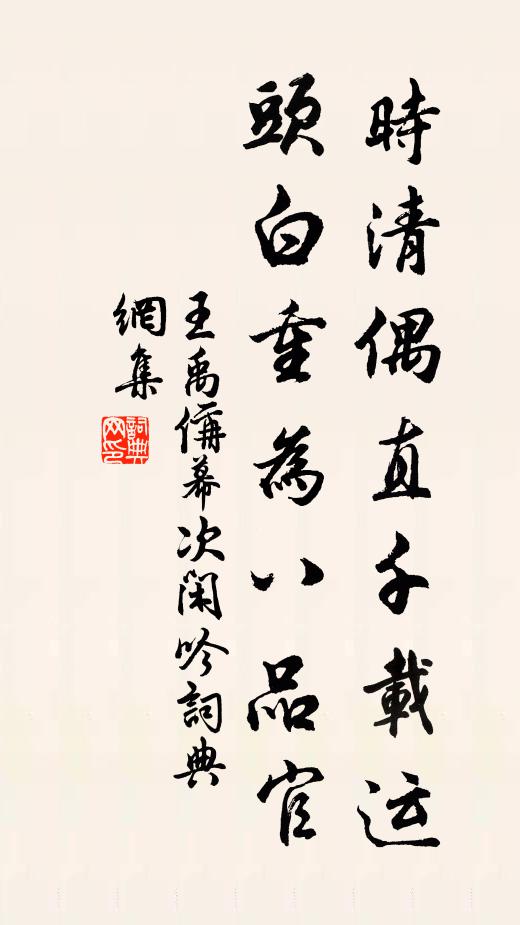 時清偶直千載运
頭白重為八品官
王禹偁幕次閑吟詞典
網集
詞典网印